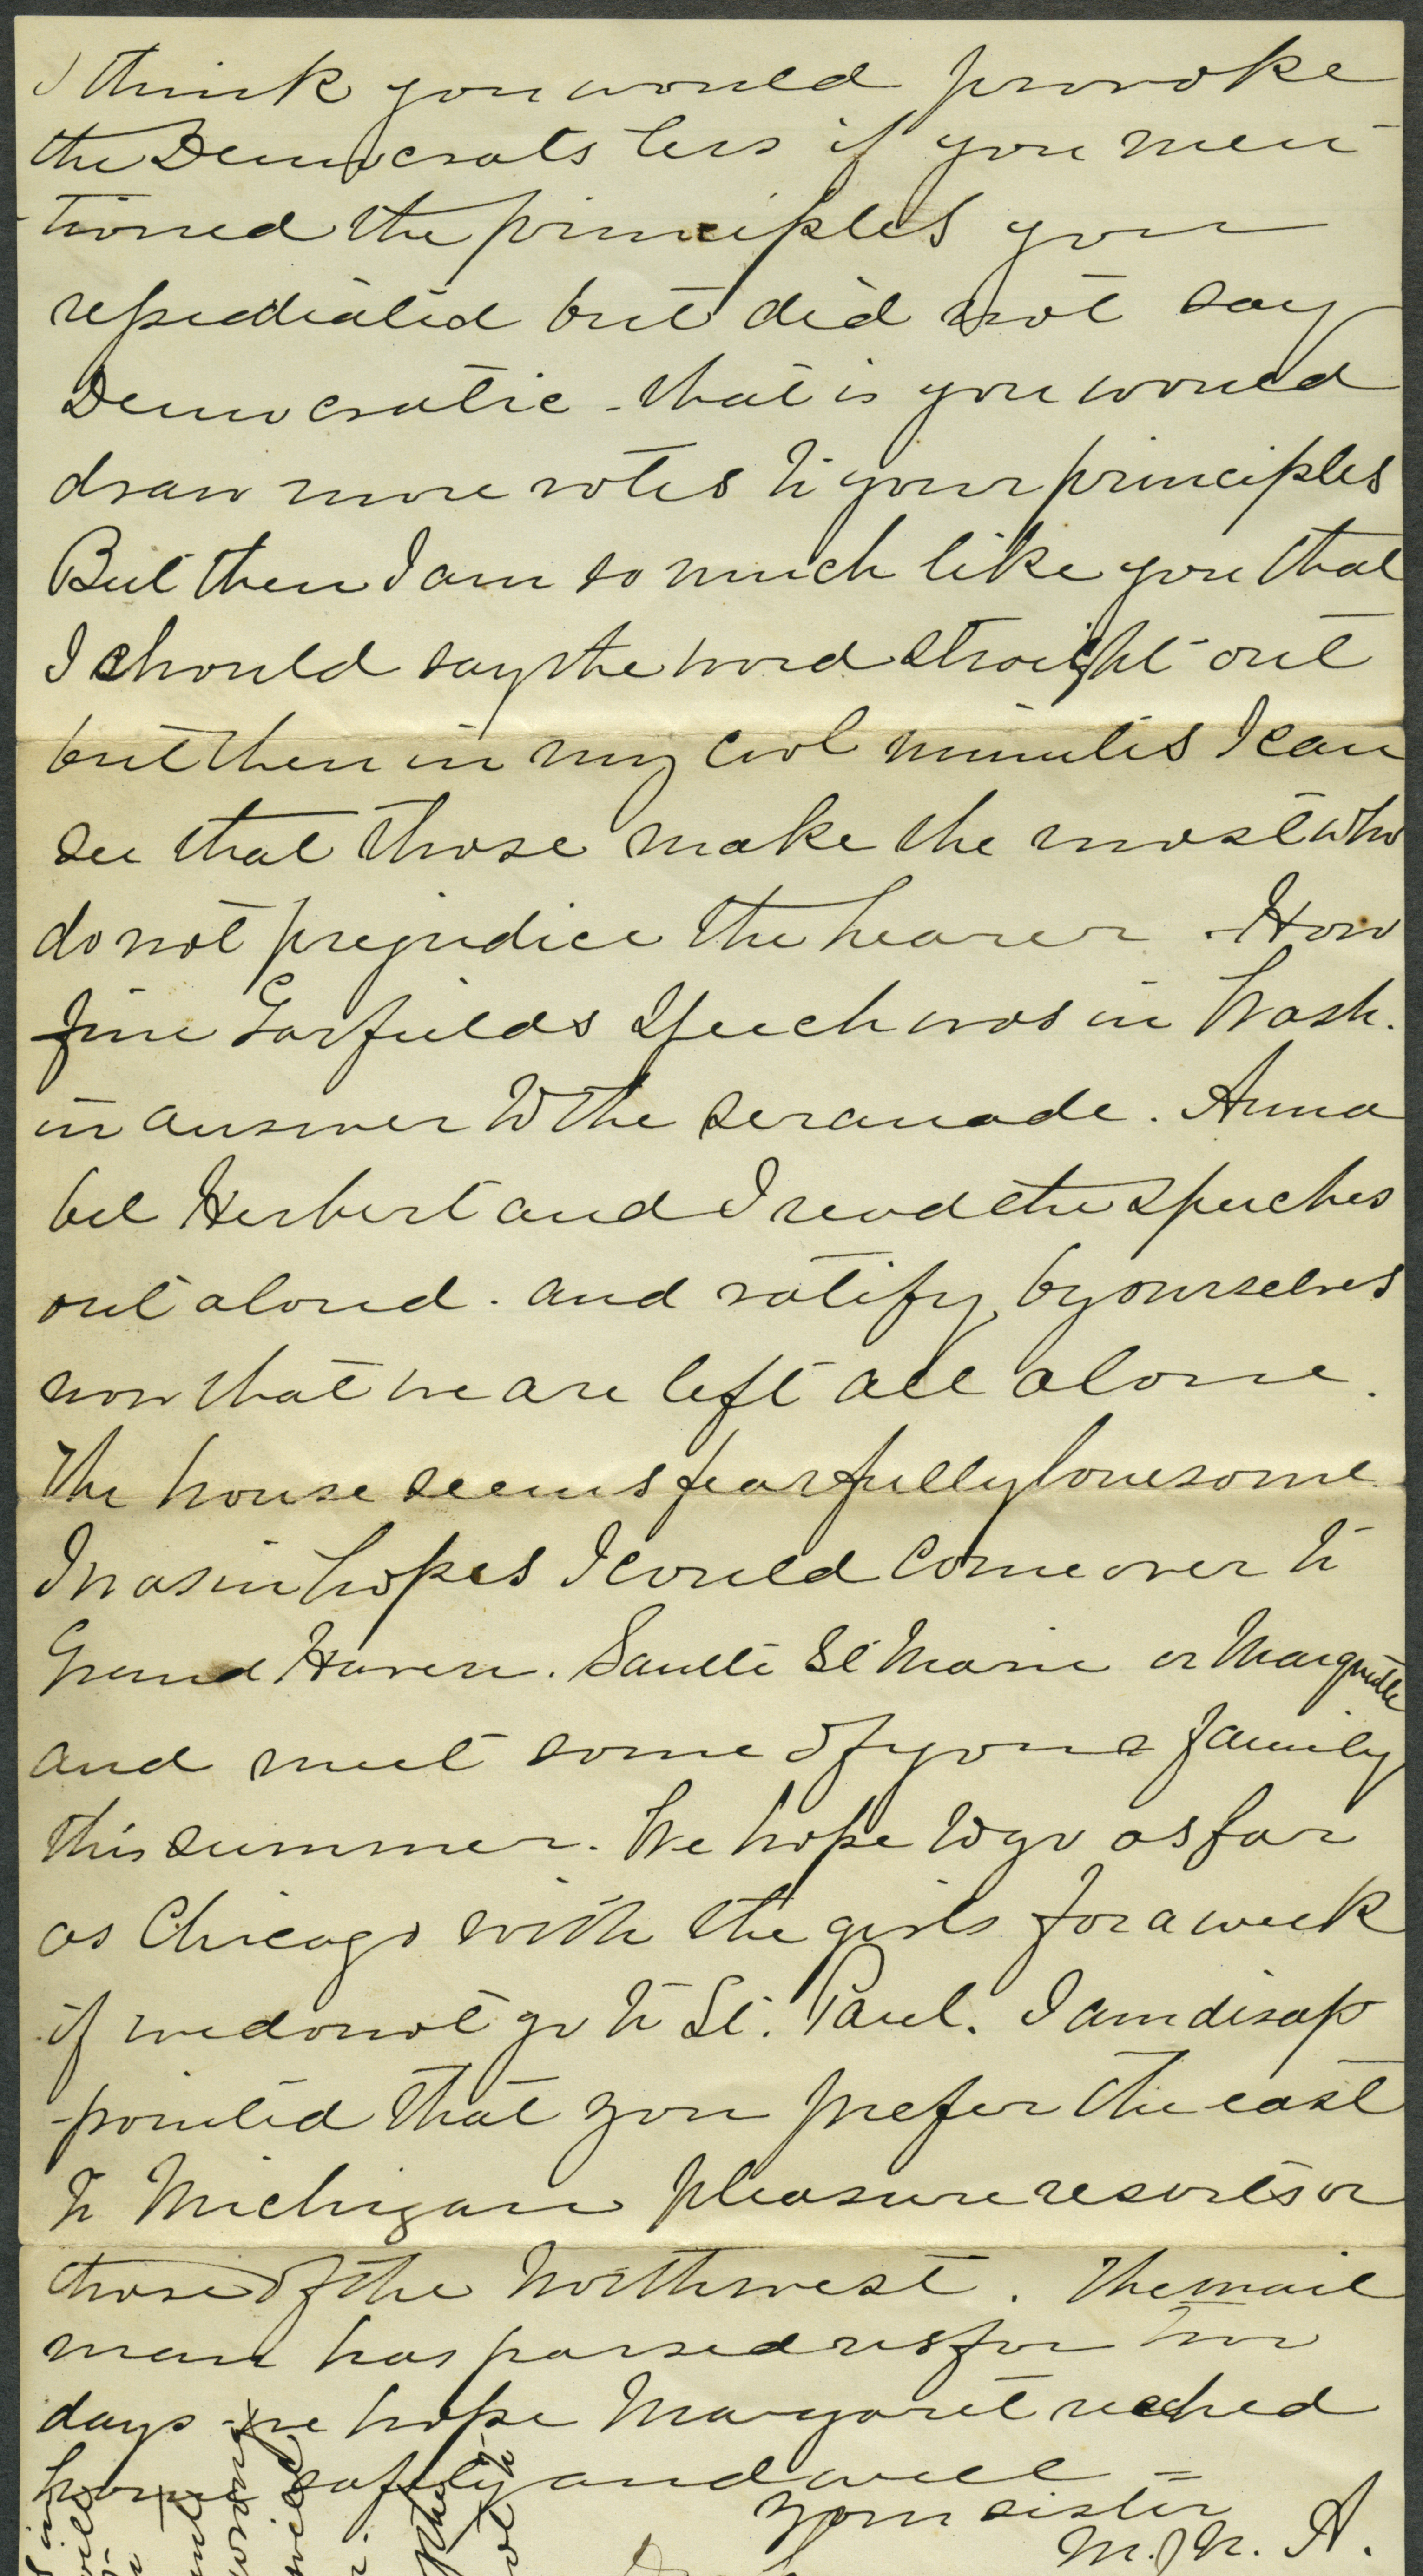 I think you would provoke
the Democrats less if you men
-tioned the principles you
repudiated but did not say
Democratic - that is you would
draw more votes to your principles
But then I am so much like you that
I should say the word straight out
but then in my cool minutes I can
see that those make the most who
do not prejudice the hearer - How
fine Garfields speech was in Wash.
in answer to the seranade. Anna
bel Herbert and I read the speeches
out aloud. and ratify by ourselves
now that we are left all alone.
The house seems fearfully lonesome.
I was in hopes I could come over to
Grand Haven. Saulte St Marie or Marquette
and meet some of your family
this summer. We hope to go as far
as Chicago with the girls for a week
if we do not go to St. Paul. I am disap
-pointed that you prefer the east
to Michigan pleasure resorts or
those of the Northwest. The mail
man has passed us for two
days - we hope Margaret reached
home safely and well =
Your sister
M. N. A.